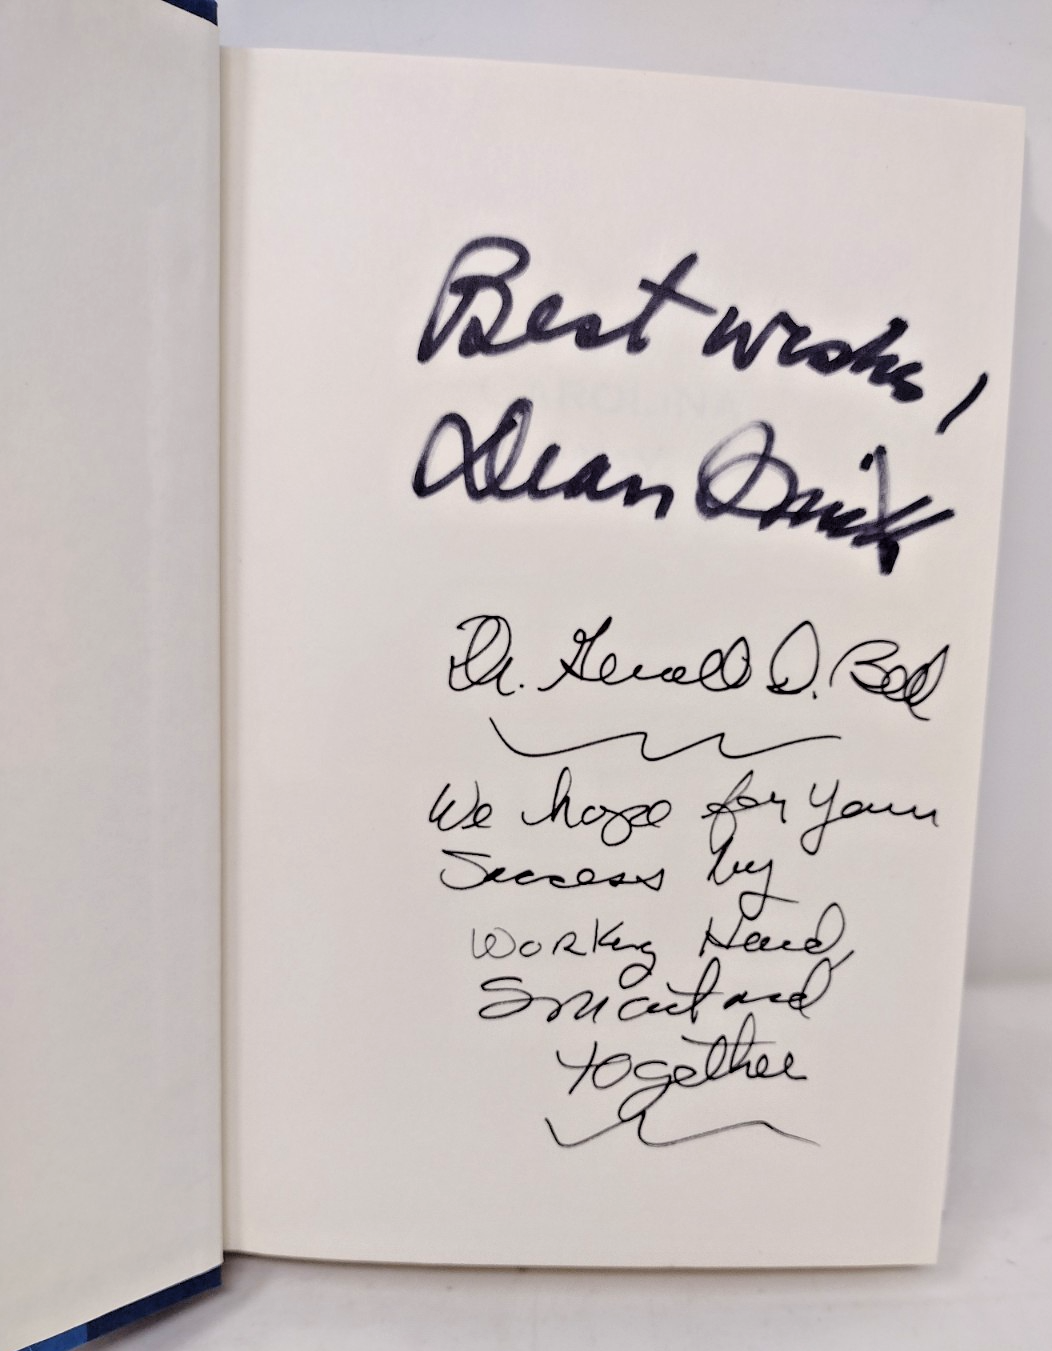 Best wishes,
Dean Smith
Dr. Gerald D. Bell
We hope for your
Success by
Working Hard,
Smart and
together
CAROLINA